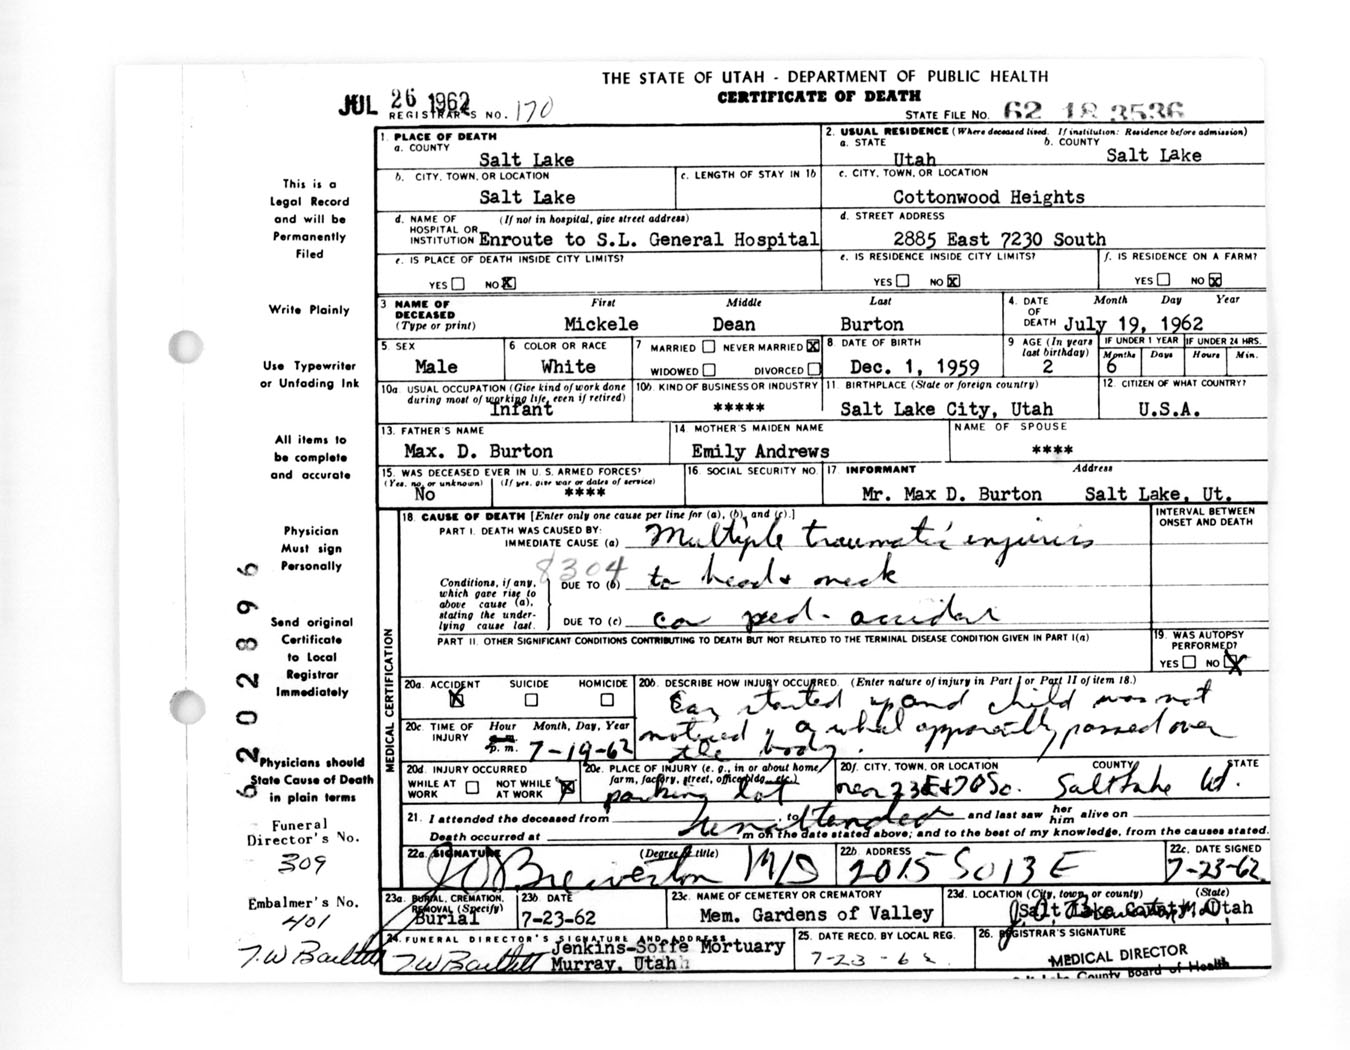 THE STATE OF UTAH - DEPARTMENT OF PUBLIC HEALTH
CERTIFICATE OF DEATH
JUL 26 1962
REGISTRAR'S NO. 170
STATE FILE NO. 62 18 3536
This is a
Legal Record
and will be
Permanently
Filed
Write Plainly
Use Typewriter
or Unfading Ink
All items to
be complete
and accurate
Physician
Must sign
Personally
Send original
Certificate
to Local
Registrar
Immediately
Physicians should
State Cause of Death
in plain terms
Funeral
Director's No.
309
Embalmer's No.
401
T.W Bartlett
6202896
1. PLACE OF DEATH
a. COUNTY
Salt Lake
b. CITY, TOWN, OR LOCATION
Salt Lake
c. LENGTH OF STAY IN 1b
d. NAME OF (If not in hospital, give street address)
HOSPITAL OR
INSTITUTION Enroute to S.L. General Hospital
e. IS PLACE OF DEATH INSIDE CITY LIMITS?
YES NO X
2. USUAL RESIDENCE (Where deceased lived. If institution: Residence before admission)
a. STATE Utah b. COUNTY Salt Lake
c. CITY, TOWN, OR LOCATION
Cottonwood Heights
d. STREET ADDRESS
2885 East 7230 South
e. IS RESIDENCE INSIDE CITY LIMITS?
YES NO X
f. IS RESIDENCE ON A FARM?
YES NO X
3 NAME OF DECEASED (Type or print) First Middle Last
Mickele Dean Burton
4. DATE OF DEATH Month Day Year
July 19, 1962
5. SEX
Male
6 COLOR OR RACE
White
7 MARRIED NEVER MARRIED X
WIDOWED DIVORCED
8. DATE OF BIRTH
Dec. 1, 1959
9 AGE (In years last birthday)
2
IF UNDER 1 YEAR IF UNDER 24 HRS.
Months Days Hours Min.
6
10a. USUAL OCCUPATION (Give kind of work done
during most of working life, even if retired)
Infant
10b. KIND OF BUSINESS OR INDUSTRY
*****
11. BIRTHPLACE (State or foreign country)
Salt Lake City, Utah
12. CITIZEN OF WHAT COUNTRY?
U.S.A.
13. FATHER'S NAME
Max. D. Burton
14 MOTHER'S MAIDEN NAME
Emily Andrews
NAME OF SPOUSE
****
15. WAS DECEASED EVER IN U. S. ARMED FORCES?
(Yes, no, or unknown) (If yes, give war or dates of service)
No ****
16. SOCIAL SECURITY NO.
17. INFORMANT Address
Mr. Max D. Burton Salt Lake, Ut.
18. CAUSE OF DEATH [Enter only one cause per line for (a), (b), and (c).]
INTERVAL BETWEEN
ONSET AND DEATH
PART I. DEATH WAS CAUSED BY:
IMMEDIATE CAUSE (a) Multiple traumatic injuries
8304
Conditions, if any,
which gave rise to
above cause (a),
stating the under-
lying cause last.
DUE TO (b) to head & neck
DUE TO (c) car ped - accident
PART II. OTHER SIGNIFICANT CONDITIONS CONTRIBUTING TO DEATH BUT NOT RELATED TO THE TERMINAL DISEASE CONDITION GIVEN IN PART I(a)
19. WAS AUTOPSY
PERFORMED?
YES NO X
MEDICAL CERTIFICATION
20a. ACCIDENT SUICIDE HOMICIDE
X
20b. DESCRIBE HOW INJURY OCCURRED. (Enter nature of injury in Part I or Part II of item 18.)
Car started up and child was not
noticed & a wheel apparently passed over
the body.
20c. TIME OF INJURY Hour Month, Day, Year
p. m. 7-19-62
20d. INJURY OCCURRED
WHILE AT WORK NOT WHILE AT WORK X
20e. PLACE OF INJURY (e. g., in or about home,
farm, factory, street, office bldg., etc.)
parking lot
20f. CITY, TOWN, OR LOCATION COUNTY STATE
near 23E & 70 So. Salt Lake Ut.
21. I attended the deceased from to and last saw her him alive on
Unattended
Death occurred at m on the date stated above; and to the best of my knowledge, from the causes stated.
22a. SIGNATURE (Degree or title)
JO Brewerton MD
22b. ADDRESS
2015 So 13 E
22c. DATE SIGNED
7-23-62
23a. BURIAL, CREMATION,
REMOVAL (Specify)
Burial
23b. DATE
7-23-62
23c. NAME OF CEMETERY OR CREMATORY
Mem. Gardens of Valley
23d. LOCATION (City, town, or county) (State)
Salt Lake County, Utah
24. FUNERAL DIRECTOR'S SIGNATURE AND ADDRESS
T W Bartlett Jenkins-Soffe Mortuary
Murray, Utah
25. DATE RECD. BY LOCAL REG.
7-23-62
26. REGISTRAR'S SIGNATURE
MEDICAL DIRECTOR
Lake County Board of Health